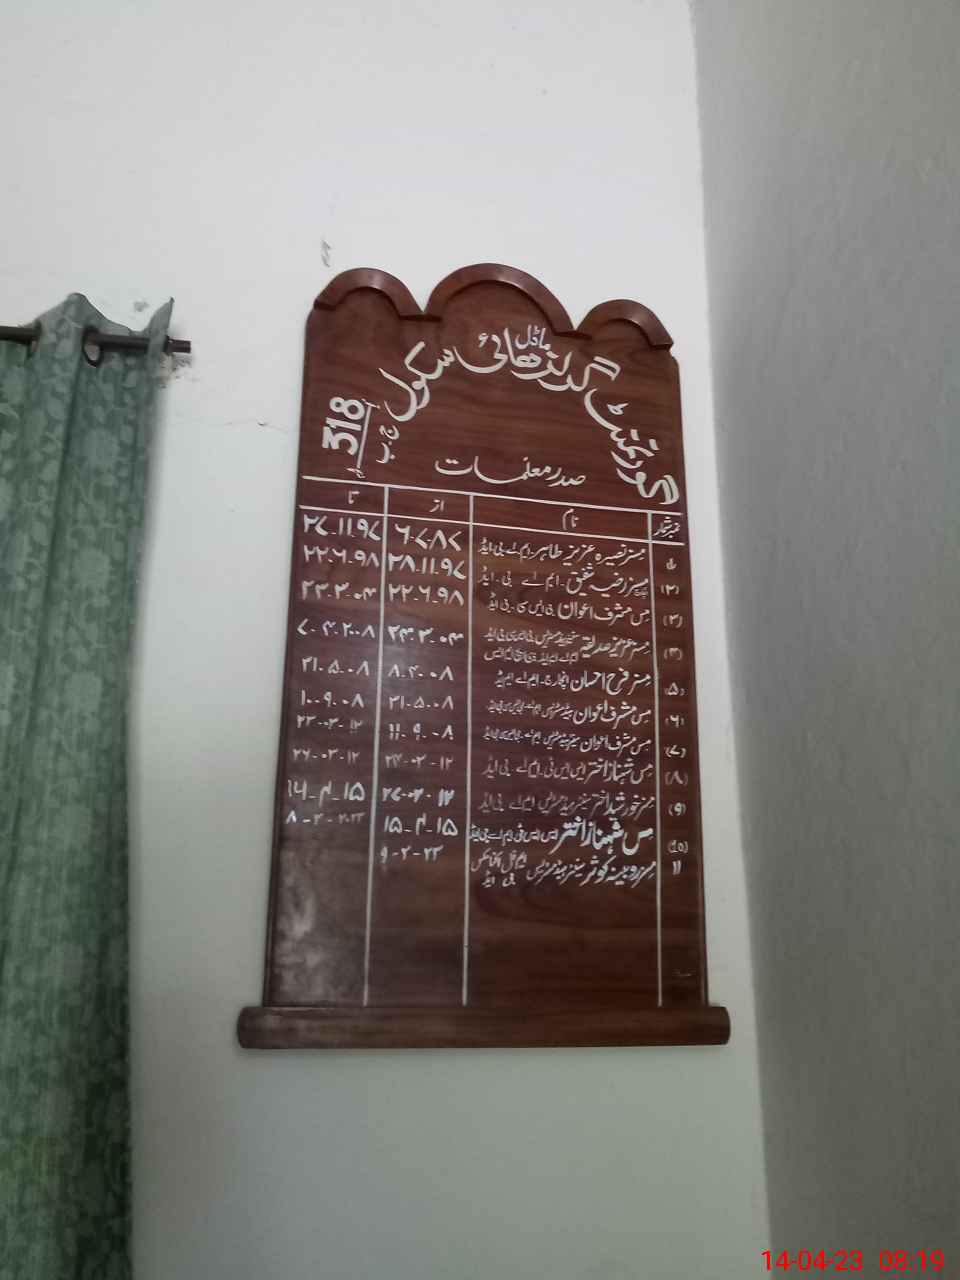 گورنمنٹ گرلز ماڈل ہائی سکول 318 ج ب
صدر معلمات
نمبر شمار نام از تا
۱ مسز نصیرہ عزیز طاہر۔ ایم۔اے بی ایڈ ۶-۷-۸۷ ۲۷-۱۱-۹۷
(۲) مسز رضیہ شفیق۔ ایم اے بی۔ایڈ ۲۸-۱۱-۹۷ ۲۲-۶-۹۸
(۳) مس مشرف اعوان بی ایس سی۔ بی ایڈ ۲۲-۶-۹۸ ۲۳-۳-۰۴
(۴) مسز عزیز صدیقہ ۲۴-۳-۰۴ ۷-۴-۲۰۰۸
(۵) مسز فرح احسان انچارج۔ ایم اے ایم ایڈ ۸-۴-۰۸ ۲۱-۵-۰۸
(۶) مس مشرف اعوان ہیڈمسٹریس ۲۱-۵-۰۸ ۱۰-۹-۰۸
(۷) مس مشرف اعوان سینئر ہیڈمسٹریس ۱۱-۹-۰۸ ۲۳-۰۳-۱۲
(۸) مس شہناز اختر ایس ایس ٹی۔ ایم اے۔ بی ایڈ ۲۴-۰۳-۱۲ ۲۶-۰۳-۱۲
(۹) مسز خورشید اختر سینئر ہیڈمسٹریس ایم اے بی ایڈ ۲۷-۰۳-۱۲ ۱۴-۴-۱۵
(۱۰) مس شہناز اختر ایس ایس ٹی ایم اے بی ایڈ ۱۵-۴-۱۵ ۸-۲-۲۰۲۳
۱۱ مسز روبینہ کوثر سینئر ہیڈمسٹریس بی ایڈ ۹-۲-۲۳
14-04-23 08:19